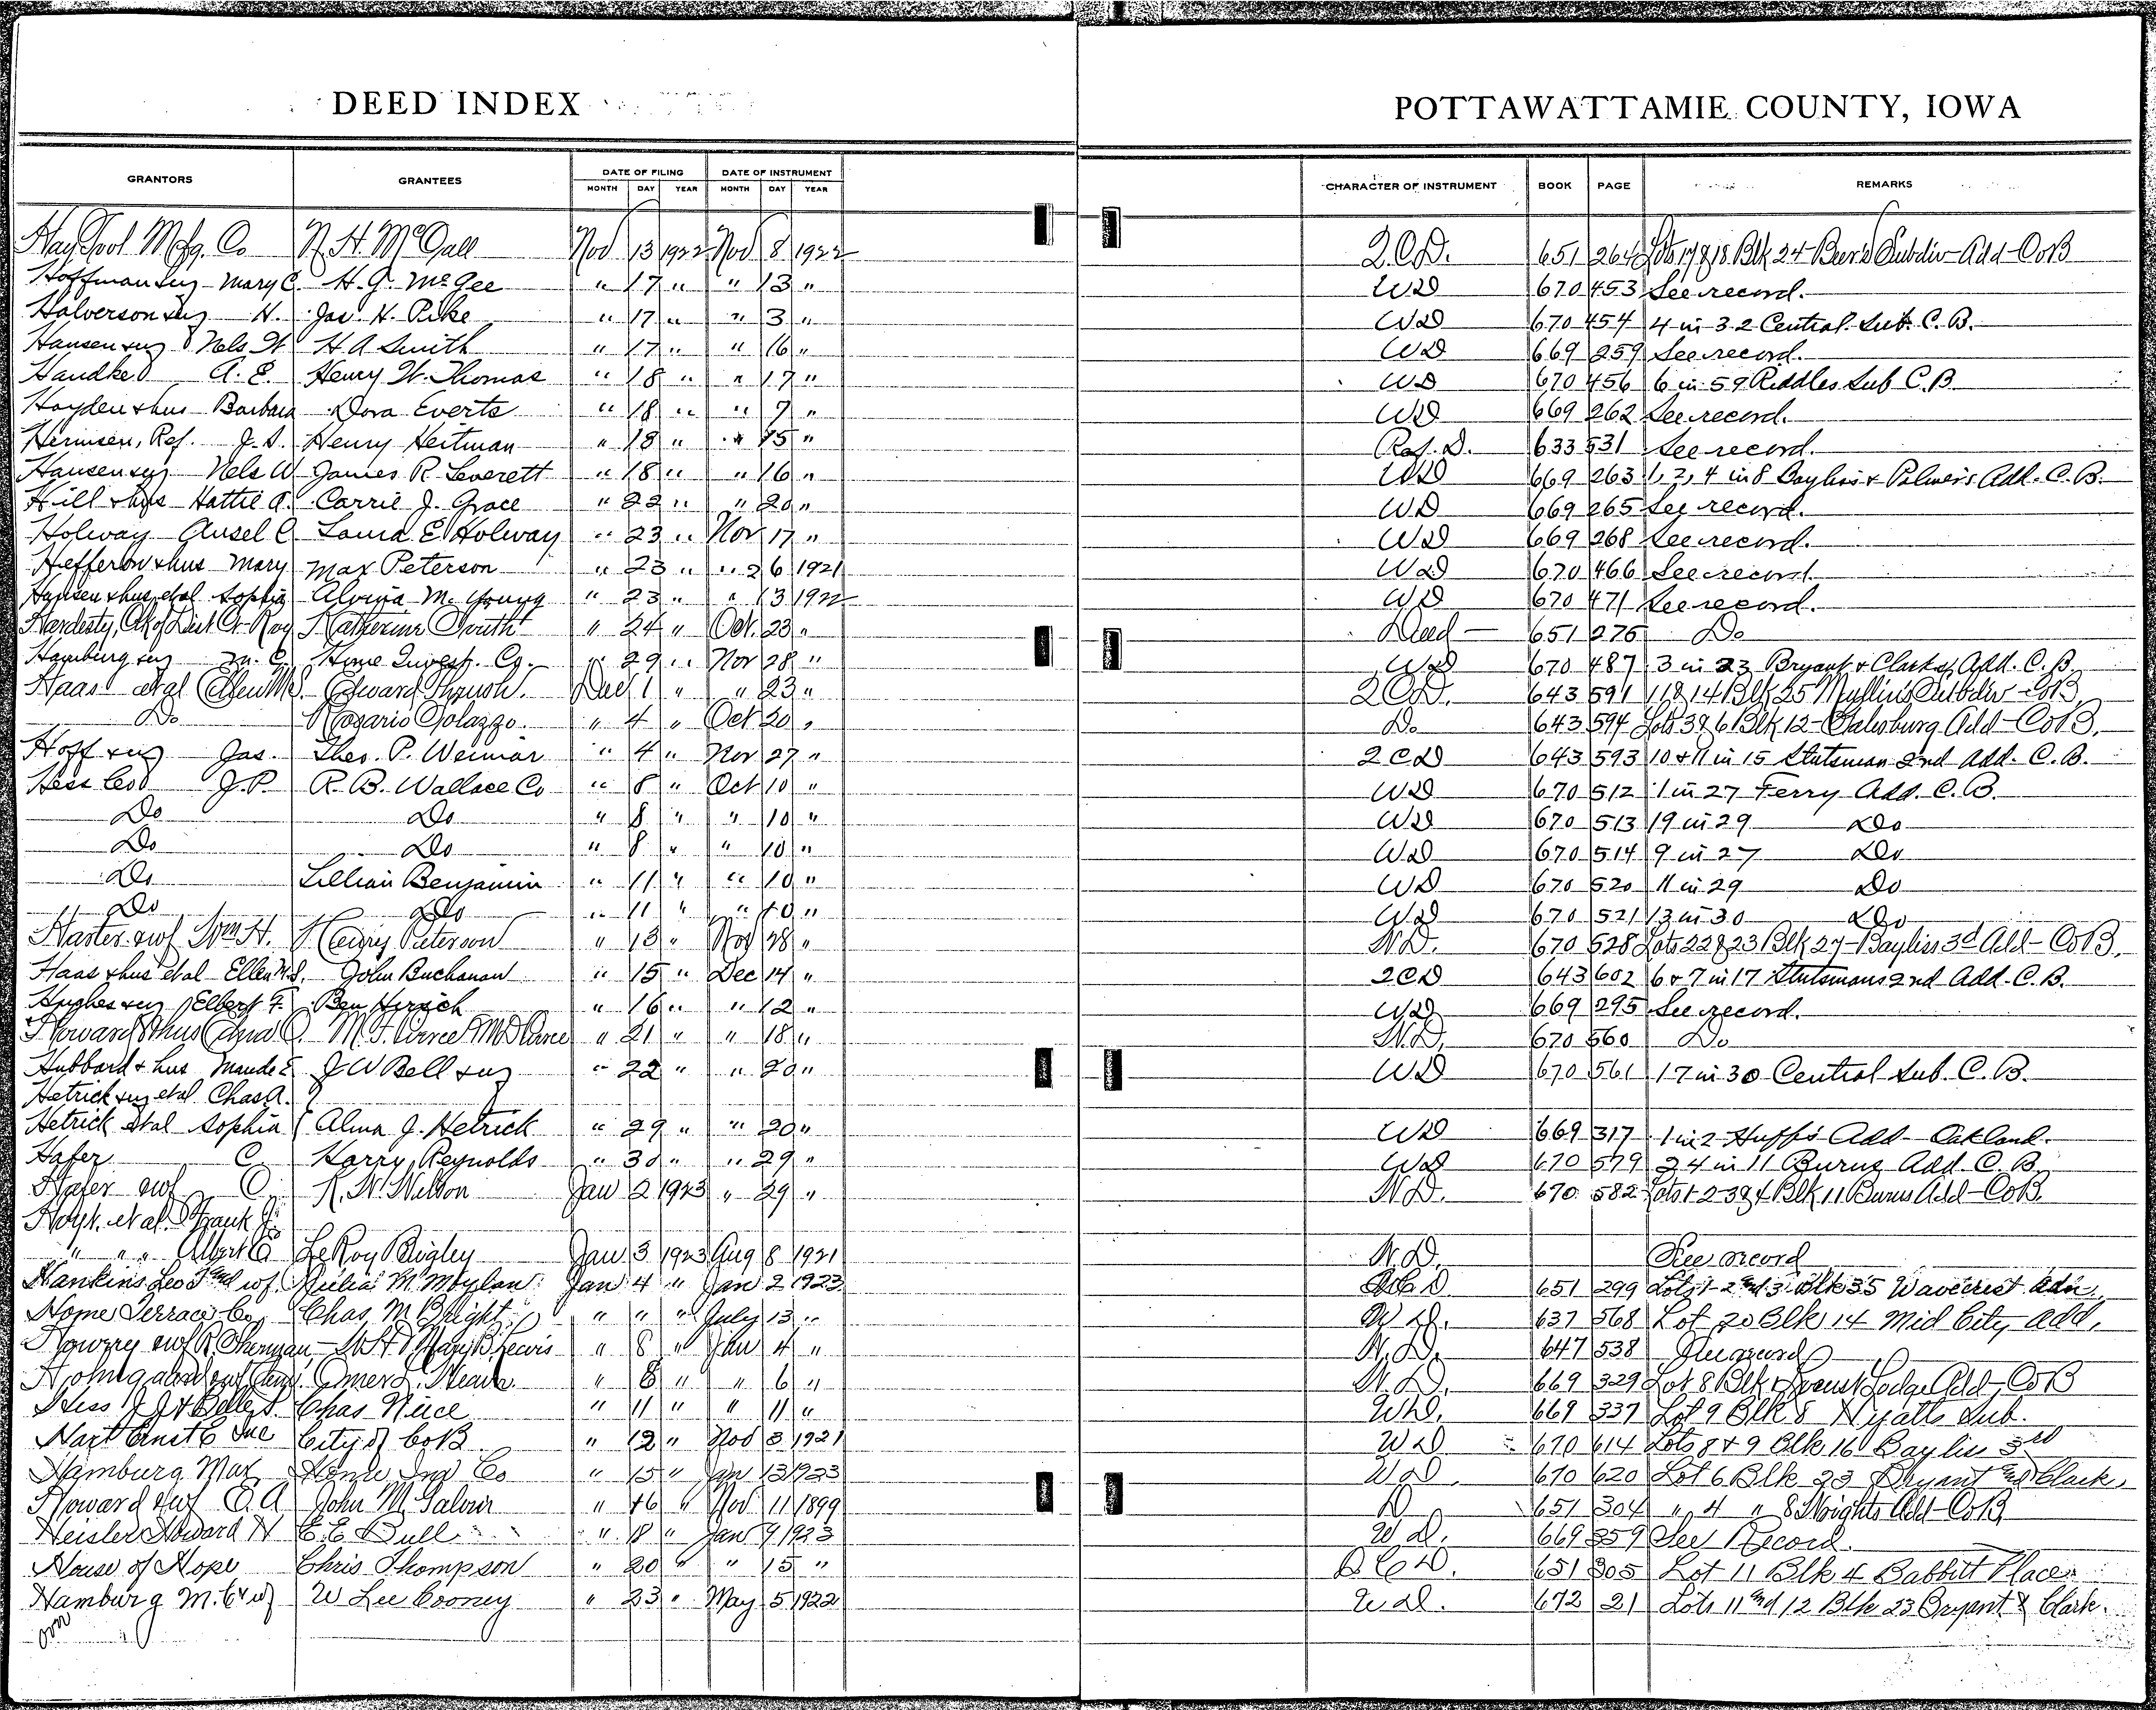 DEED INDEX
POTTAWATTAMIE COUNTY, IOWA
GRANTORS GRANTEES DATE OF FILING DATE OF INSTRUMENT CHARACTER OF INSTRUMENT BOOK PAGE REMARKS
MONTH DAY YEAR MONTH DAY YEAR
Hay Tool Mfg. Co N. H. McCall Nov 13 1922 Nov 8 1922 Q.C.D. 651 264 Lots 17 & 18 Blk 24 Beer's Subdiv-Add-CoB
Hoffman & wf - Mary C. H. G. McGee " 17 " " 13 " WD 670 453 See record.
Halverson & wf H. Jas. H. Pike " 17 " " 3 " WD 670 454 4 in 32 Central Sub. C.B.
Hansen & wf Nels W H A Smith " 17 " " 16 " WD 669 259 See record.
Handke A. E. Henry W. Thomas " 18 " " 17 " WD 670 456 6 in 59 Riddles Sub C.B
Hayden & hus Barbara Dora Everts " 18 " " 7 " WD 669 262 See record.
Hermsen, Ref. J. S. Henry Heitman " 18 " " 15 " Ref. D. 633 531 See record.
Hansen & wf Nels W James R. Leverett " 18 " " 16 " WD 669 263 1, 2, 4 in 8 Bayliss & Palmer's Add. C.B.
Hill & hus Hattie A. Carrie J. Grace " 22 " " 20 " WD 669 265 See record.
Holway Ansel C. Laura E. Holway " 23 " Nov 17 " WD 669 268 See record.
Hefferon & hus Mary Max Peterson " 23 " " 26 1921 WD 670 466 See record.
Hansen & hus, etal Sophia Alvina M. Young " 23 " " 13 1922 WD 670 471 See record.
Hardesty, Clk of Dist Ct-Roy Katherine South " 24 " Oct. 23 " Deed 651 276 Do
Hamburg & wf M. C. Home Invest. Co. " 29 " Nov 28 " WD 670 487 3 in 23 Bryant & Clarks Add. C.B.
Haas etal Ellen M.S. Edward Thrush. Dec 1 " " 23 " Q.C.D. 643 591 11 & 14 Blk 25 Mullin's Subdiv-CoB,
Do Rosario Golazzo. " 4 " Oct 20 " Do 643 594 Lots 3 & 6 Blk 12-Galesburg Add-CoB.
Hoff & wf Jas. Theo. P. Weimar " 4 " Nov 27 " QCD 643 593 10 & 11 in 15 Stutsman 2nd Add. C.B.
Hess Co J.P. R. B. Wallace Co " 8 " Oct 10 " WD 670 512 1 in 27 Ferry Add. C.B.
Do Do " 8 " " 10 " WD 670 513 19 in 29 Do
Do Do " 8 " " 10 " WD 670 514 9 in 27 Do
Do Lillian Benjamin " 11 " " 10 " WD 670 520 11 in 29 Do
Do Do " 11 " " 10 " WD 670 521 13 in 30 Do
Harter & wf Wm H. Henry Peterson " 13 " Nov 28 " W.D. 670 528 Lots 22 & 23 Blk 27-Bayliss 3d Add-CoB.
Haas & hus etal Ellen M.S. John Buchanan " 15 " Dec 14 " QCD 643 602 6 & 7 in 17 Stutsmans 2nd Add. C.B.
Hughes & wf Elbert F. Ben Hirsch " 16 " " 12 " WD 669 295 See record.
Howard & hus Anna C. M. F. Pierce & M D Pierce " 21 " " 18 " W.D. 670 560 Do
Hubbard & hus Maude E J W Bell & wf " 22 " " 20 " WD 670 561 17 in 30 Central Sub. C.B.
Hetrick & wf etal Chas A.
Hetrick etal Sophia Alma J. Hetrick " 29 " " 20 " WD 669 317 1 in 2 Huff's Add-Oakland.
Hafer C. Harry Reynolds " 30 " " 29 " WD 670 579 24 in 11 Burns Add. C.B.
Hafer & wf C. R. N. Nelson Jan 2 1923 " 29 " W.D. 670 582 Lots 1-2-3 & 4 Blk 11 Burns Add-CoB.
Hoyt. et al. Frank J.
" " " Albert C LeRoy Bigley Jan 3 1923 Aug 8 1921 W.D. See record
Hankins Leo J and wf. Julia M Moylan Jan 4 " Jan 2 1923 Q C D 651 299 Lots 1-2 and 3 Blk 35 Wavecrest Adn.
Home Terrace Co, Chas. M. Bright " " " July 13 " W D. 637 568 Lot 20 Blk 14 Mid City add,
Howrey & wf R. Sherman W H & Mary B. Lewis " 8 " Jan 4 " W. D. 647 538 See record
Omer J. " 8 " " 6 " W. D. 669 329 Lot 8 Blk 1 Locust Lodge Add-CoB
Hess J J & Belle S. Chas Nuce " 11 " " 11 " Wd. 669 337 Lot 9 Blk 8 Hyatts Sub.
Hart Ernst E Inc City of CoB " 12 " Nov 3 1921 W D 670 614 Lots 8 & 9 Blk 16 Bayliss 3rd
Hamburg Max Home Inv Co " 15 " Jan 13 1923 W D. 670 620 Lot 6 Blk 23 Bryant and Clark,
Howard & wf O. A John M. Galvin " 16 " Nov 11 1899 D 651 304 " 4 " 8 Wrights Add-CoB
Heisler Howard N E. E. Bull " 18 " Jan 9 1923 W D. 669 359 See Record.
House of Hope Chris Thompson " 20 " " 15 " Q C D. 651 305 Lot 11 Blk 4 Babbitt Place.
Hamburg M. C & wf W Lee Cooney " 23 " May 5 1922 W D. 672 21 Lots 11 and 12 Blk 23 Bryant & Clark.